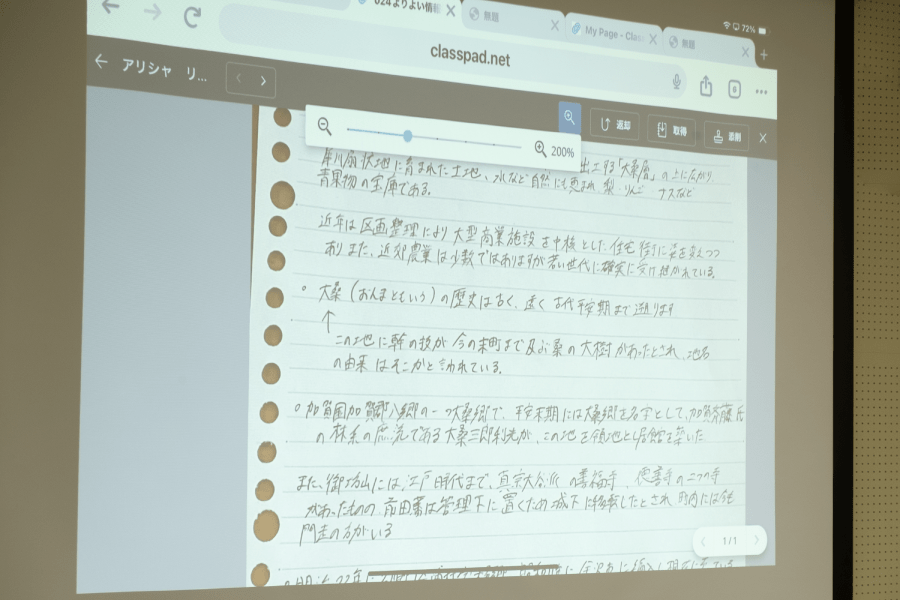 024よりよい情報
無題
My Page - Clas
無題
72%
classpad.net
アリシャ リ...
返却
取得
添削
200%
出土する「大桑層」の上に広がり
犀川扇状地に育まれた土地、水など自然にも恵まれ 梨・りんご ナスなど
青果物の宝庫である。
近年は区画整理により大型商業施設を中核とした住宅街に姿を変えつつ
あり また、近郊農業は少数ではありますが若い世代に確実に受け継がれている。
○ 大桑(おんまともいう)の歴史は古く、遠く古代平安期まで遡ります
↑
この地に幹の枝が今の末町まで及ぶ桑の大樹があったとされ、地名
の由来はそこからと言われている。
○ 加賀国加賀郡八郷の一つ大桑郷で、平安末期には大桑郷を名字として、加賀斉藤氏
の林系の庶流である大桑三郎利光が、この地を領地とし居館を築いた
また、御坊山には、江戸時代まで、真宗大谷派の善福寺、徳善寺の二つの寺
があったものの 前田藩は管理下に置くため城下に移転したとされ 町内には
門徒の方がいる
明治22年に
1/1